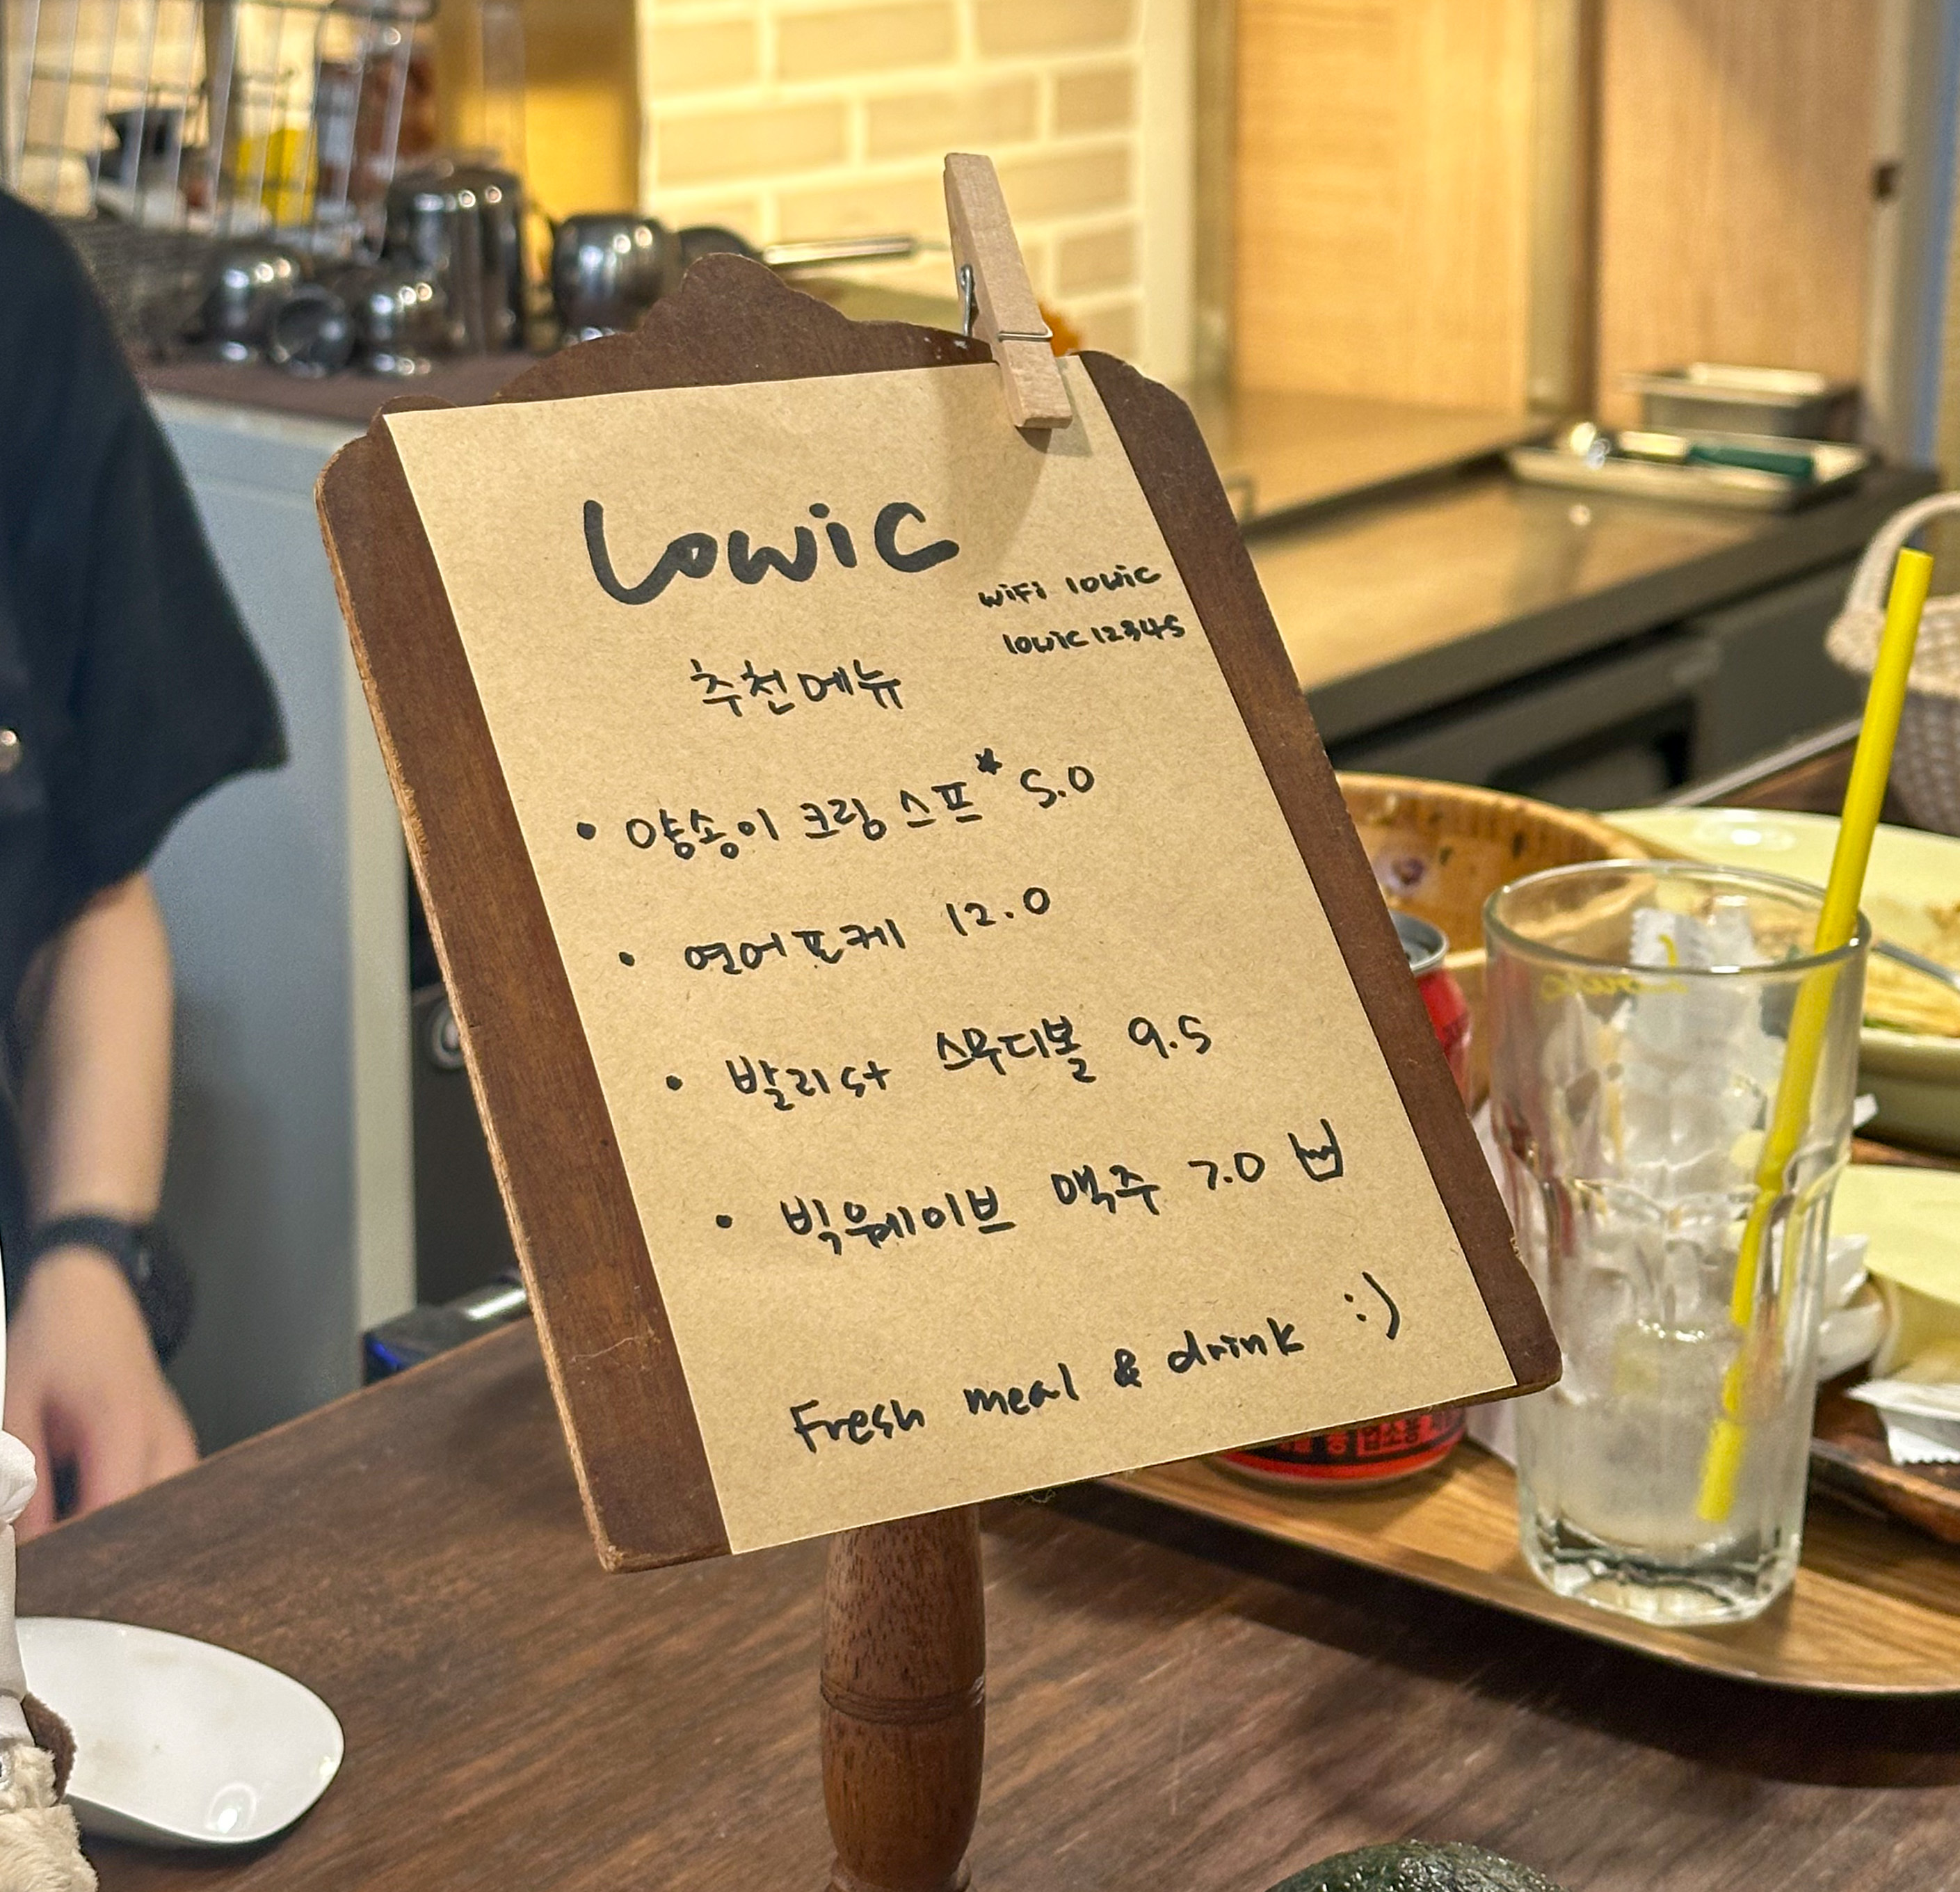 Lowic
wifi lowic
lowic12345
추천메뉴
• 양송이 크림 스프* 5.0
• 연어포케 12.0
• 발리st 스무디볼 9.5
• 빅웨이브 맥주 7.0
Fresh meal & drink :)
업소용